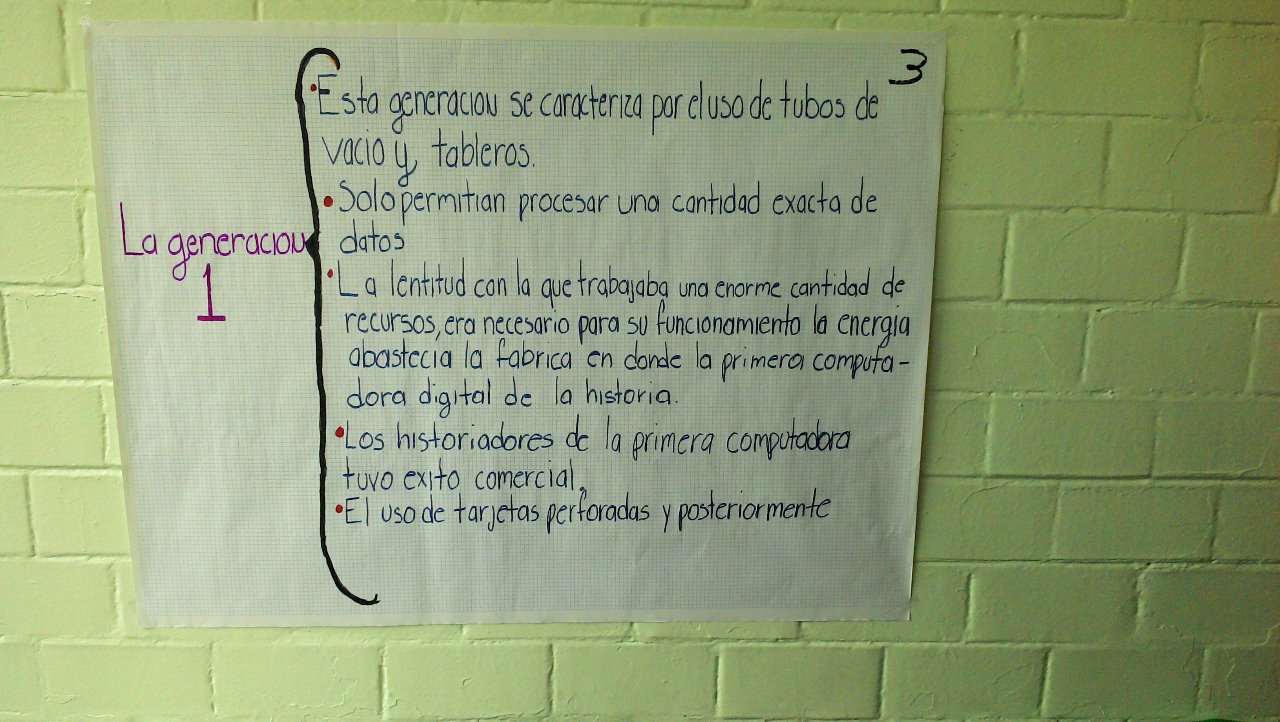 3
La generacion
1
• Esta generacion se caracteriza por el uso de tubos de
vacio y tableros.
• Solo permitian procesar una cantidad exacta de
datos
• La lentitud con la que trabajaba una enorme cantidad de
recursos, era necesario para su funcionamiento la energia
abastecia la fabrica en donde la primera computa-
dora digital de la historia.
• Los historiadores de la primera computadora
tuvo exito comercial.
• El uso de tarjetas perforadas y posteriormente